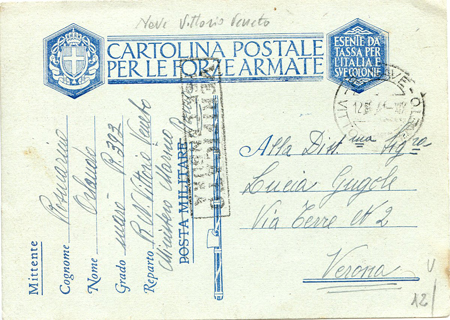 Nave Vittorio Veneto
CARTOLINA POSTALE
PER LE FORZE ARMATE
ESENTE DA
TASSA PER
L'ITALIA E
SVE COLONIE
VERIFICATO
CENSURA
Mittente
Cognome Romarino
Nome Orlando
Grado R. 393
Reparto R.N. Vittorio Veneto
Ministero Marina
POSTA MILITARE
Alla Dist.ma Sig.ra
Lucia Gugole
Via Terre N 2
Verona
V
12/